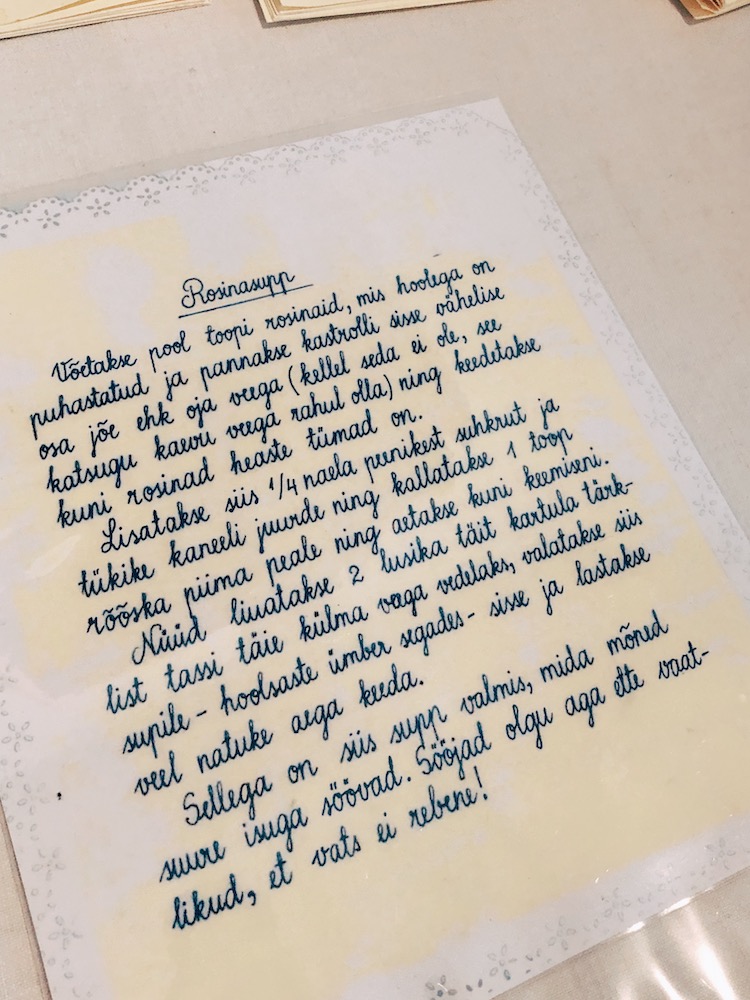 Rosinasupp
Võetakse pool toopi rosinaid, mis hoolega on
puhastatud ja pannakse kastrolli sisse vähelise
osa jõe ehk oja veega (kellel seda ei ole, see
katsugu kaevu veega rahul olla) ning keedetakse
kuni rosinad heaste tümad on.
Lisatakse siis 1/4 naela peenikest suhkrut ja
tükike kaneeli juurde ning kallatakse 1 toop
rõõska piima peale ning aetakse kuni keemiseni.
Nüüd liuatakse 2 lusika täit kartula tärk-
list tassi täie külma veega vedelaks, valatakse siis
supile - hoolsaste ümber segades - sisse ja lastakse
veel natuke aega keeda.
Sellega on siis supp valmis, mida mõned
suure isuga söövad. Sööjad olgu aga ette vaat-
likud, et vats ei rebene!